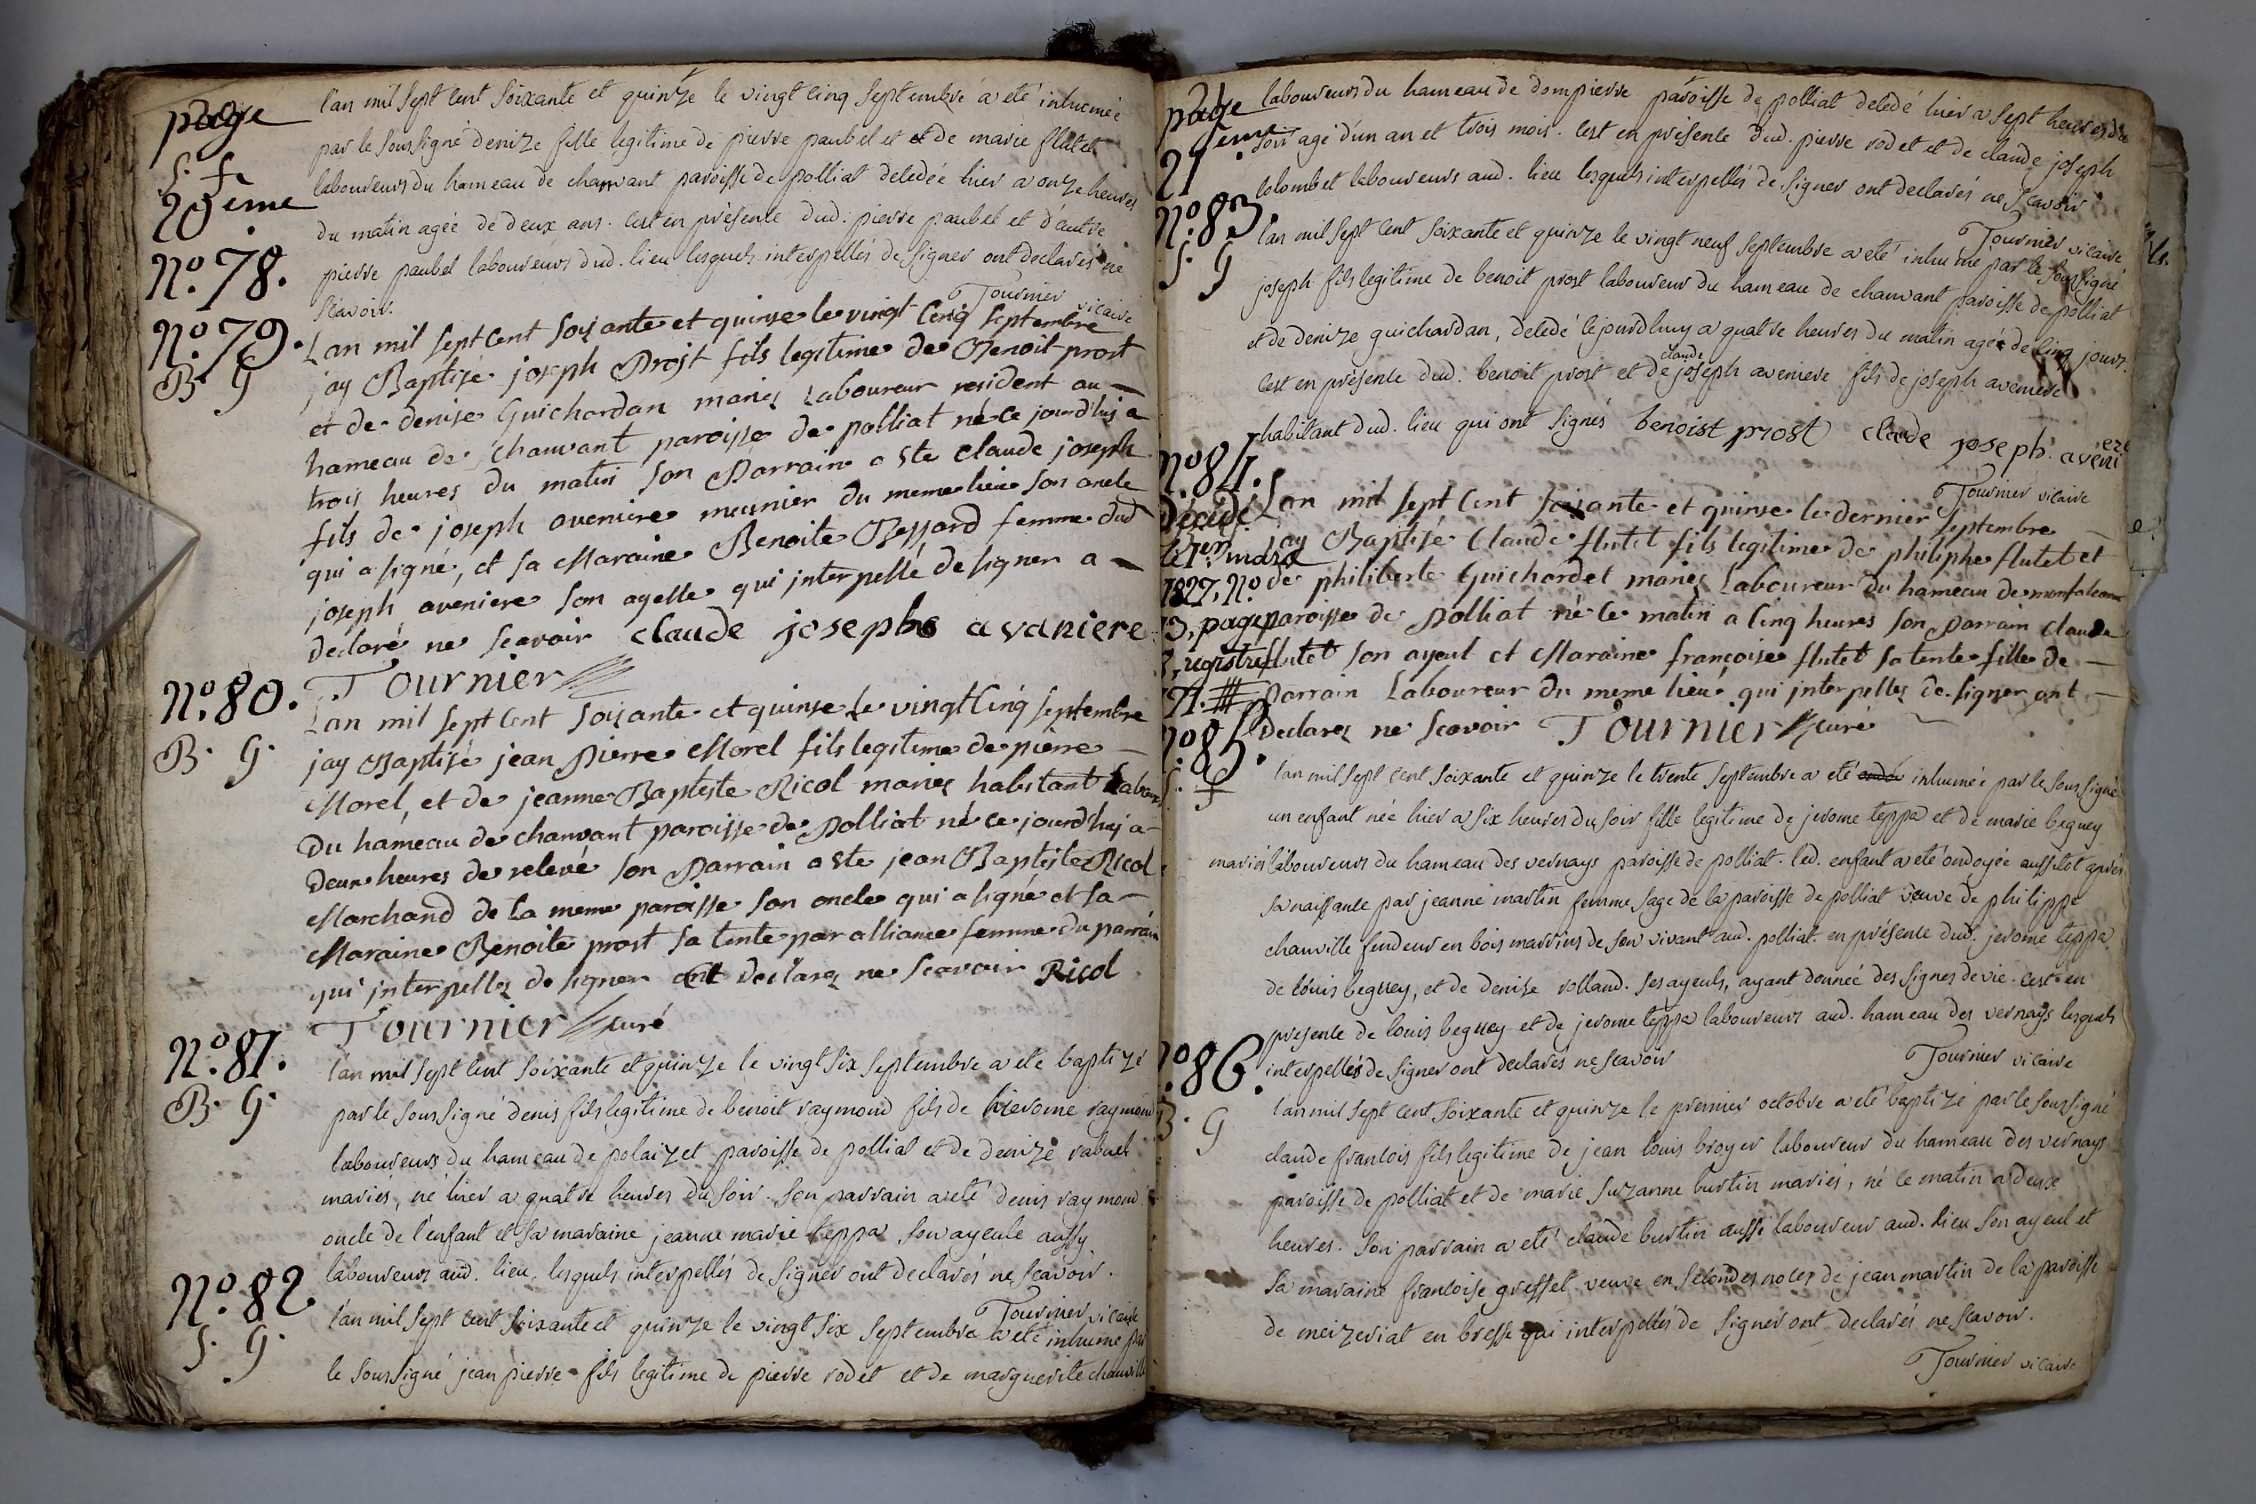 page
S. f.
20eme
l'an mil sept cent soixante et quinze le vingt cinq septembre a eté inhumeé
par le soussigné denize fille legitime de pierre paubel et et de marie flutet
laboureurs du hameau de chanvant paroisse de polliat deledeé hier a onze heures
du matin agée de deux ans. c'est en présence dud. pierre paubel et d'autre
N.o 78.
pierre paubel laboureurs dud. lieu lesquels interpellés de signer ont declarés ne
scavoir.
Tournier vicaire
N.o 79.
B. G
Lan mil sept cent soixante et quinse le vingt Cinq septembre
jay Baptisé joseph Prost fils legitime de Benoit prost
et de denise Guichardan mariez Laboureur resident au
hameau de chanvant paroisse de polliat né ce jourd'huj a
trois heures du matin son Parrain a Ete claude joseph
fils de joseph aveniere meunier du meme lieu son oncle
qui a signé, et sa Maraine Benoite Bessard femme dud
joseph aveniere son ayelle qui interpellé de signer a
declaré ne scavoir claude joseph avaniere
Tournier
N.o 80.
B. G.
Lan mil sept cent soixante et quinse le vingt Cinq septembre
jay Baptisé jean Pierre Morel fils legitime de pierre
Morel, et de jeanne Baptiste Ricol mariez habitant Labour
Du hameau de chanvant paroisse de Polliat né ce jourdhuj a
Deux heures de relevé son Parrain a Ete jean Baptiste Ricol
Marchand de la meme paroisse son oncle qui a signé et sa
Maraine Benoite prost sa tente par alliance femme du parrain
qui interpellez de signer ont declarez ne scavoir Ricol
Tournier curé
N.o 81.
B. G.
l'an mil sept cent soixante et quinze le vingt six septembre a ete baptizé
par le soussigné denis fils legitime de benoit raymond fils de hierome raymond
laboureurs du hameau de polaizet paroisse de polliat et de denize rabuel
mariés, né hier a quatre heures du soir. son parrain a eté denis raymond
oncle de l'enfant et sa maraine jeanne marie teppa son ayeule aussy
laboureurs aud. lieu, lesquels interpellés de signer ont declarés ne scavoir.
Tournier vicaire
N.o 82
S. G.
l'an mil sept cent soixante et quinze le vingt six septembre a eté inhumé par
le soussigné jean pierre fils legitime de pierre rodet et de marguerite chanville
page
21eme
laboureurs du hameau de dompierre paroisse de polliat deledé hier a sept heures du
soir agé d'un an et trois mois. c'est en présence dud. pierre rodet et de claude joseph
colombet laboureurs aud. lieu lesquels interpellés de signer ont declarés ne scavoir
Tournier vicaire
N.o 83.
S. G
l'an mil sept cent soixante et quinze le vingt neuf septembre a eté inhumé par le soussigné
joseph fils legitime de benoit prost laboureur du hameau de chanvant paroisse de polliat
et de denize guichardan, deledé cejourdhuy a quatre heures du matin agé de cinq jours.
c'est en présence dud. benoit prost et de claude joseph aveniere fils de joseph aveniere
habitant dud. lieu qui ont signés benoist prost claude joseph aveniere
Tournier vicaire
N.o 84.
Décédé
le 1er mars
1827, N.o
13, page
3, registre
Lan mil sept cent soixante et quinse le dernier septembre
jay Baptisé Claude flutet fils legitime de philiphe flutet et
de philiberte Guichardet mariez Laboureur du hameau de
paroisse de Polliat né le matin a Cinq heures son Parrain claude
flutet son ayeul et Maraine françoise flutet sa tente fille de
Parrain Laboureur du meme lieu qui interpellez de signer ont
Declarez ne scavoir Tournier curé
N.o 85.
S. f
l'an mil sept cent soixante et quinze le trente septembre a eté inhumeé par le soussigné
un enfant née hier a six heures du soir fille legitime de jerome teppa et de marie beguey
mariés laboureurs du hameau des vernays paroisse de polliat. led. enfant a eté ondoyée aussitot après
sa naissance par jeanne martin femme sage de la paroisse de polliat veuve de philippe
chanville fendeur en bois marrins de son vivant aud. polliat. en présence dud. jerome teppa
de louis beguey, et de denise rolland. ses ayeuls, ayant donneé des signes de vie. c'est en
presence de louis beguey et de jerome teppa laboureurs aud. hameau des vernays lesquels
interpellés de signer ont declarés ne scavoir
Tournier vicaire
N.o 86.
B. G
l'an mil sept cent soixante et quinze le premier octobre a eté baptizé par le soussigné
claude francois fils legitime de jean louis broyer laboureur du hameau des vernays
paroisse de polliat et de marie suzanne burtin mariés, né ce matin a deux
heures. son parrain a eté claude burtin aussi laboureur aud. lieu son ayeul et
sa maraine francoise gressel veuve en secondes noces de jean martin de la paroisse
de meizeriat en bresse qui interpellés de signer ont declarés ne scavoir.
Tournier vicaire